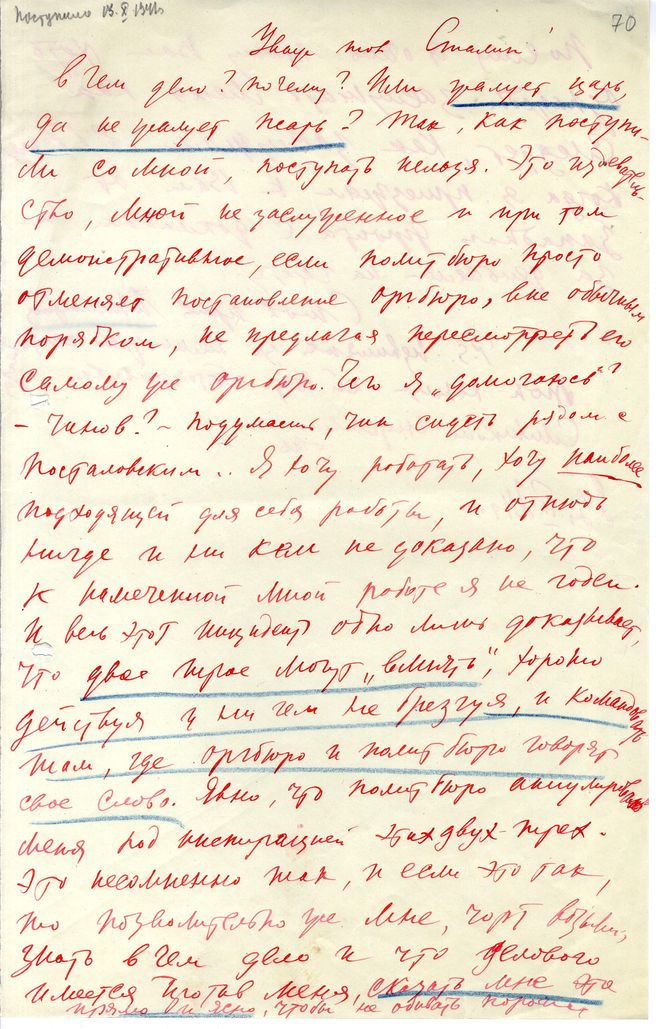 Поступило 13. X
70
Уваж тов Сталин!
В чем дело? почему? Или жалует царь,
да не жалует псарь? Так, как поступи-
ли со мной, поступать нельзя. Это издеватель-
ство, мной не заслуженное и при том
демонстративное, если политбюро просто
отменяет постановление оргбюро, вне обычным
порядком, не предлагая пересмотреть его
самому же оргбюро. Чего я „домогаюсь"?
– Чинов? – подумаешь, чин сидеть рядом с
Посталовским.. Я хочу работать, хочу наиболее
подходящей для себя работы, и отнюдь
нигде и ни кем не доказано, что
к намеченной мной работе я не годен.
И весь этот инцидент одно лишь доказывает,
что двое трое могут „влипть", хорошо
действуя и ни чем не брезгуя, и командовать
там, где оргбюро и политбюро говорят
свое слово. Явно, что политбюро аннулировало
меня под инспирацией этих двух-трех.
Это несомненно так, и если это так,
то позволительно уже мне, чорт возьми,
знать в чем дело и что делового
имеется против меня, сказать мне это
прямо и ясно, чтобы не обивать пороги